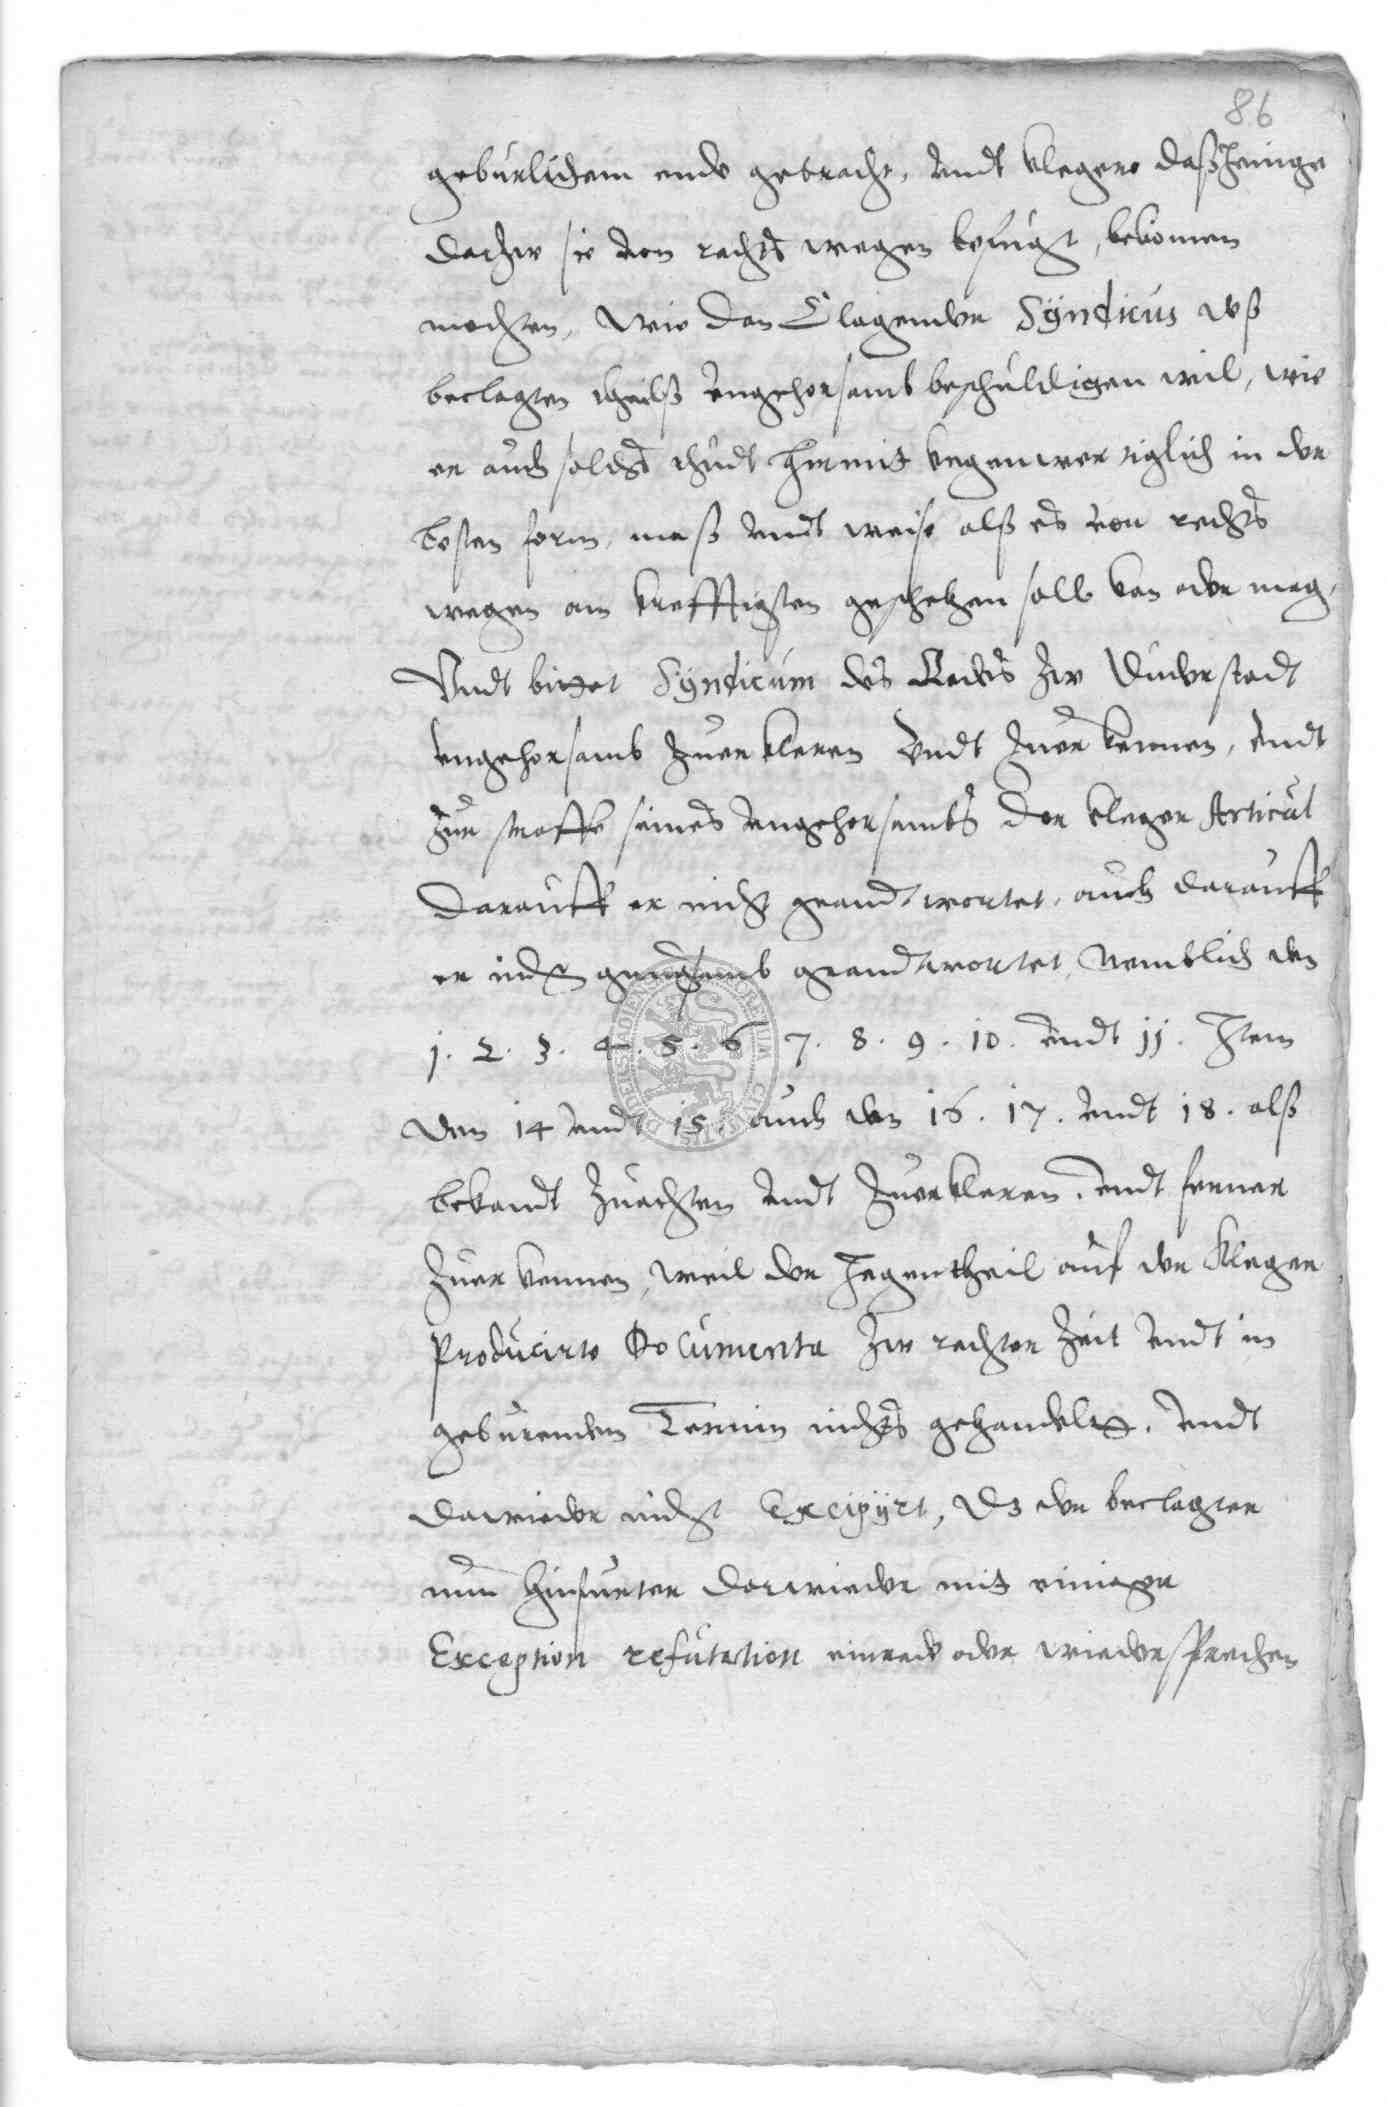 86
geburlichem ende gebracht, undt klegere daßJeinige
dazw sie von rechts wegen befugt, bekomen
mochten, wie dan Clagender Sÿndicus deß
beclagten theilß ungehorsamb beschuldigen wil, wie
er auch solchs thudt hirmit kegenwertiglich in der
besten form, maß undt weise alß es von rechts
wegen am krefftigsten geschehen soll kan oder mag,
Undt bittet Sÿndicum des Radts zw Duderstadt
ungehorsamb zuerkleren Undt zuerkennen, undt
zur straffe seines ungehorsambs der kleger Articul
darauff er nicht geandtwortet, auch darauff
er nicht gnugsamb geandtwortet, Nemblich den
1. 2. 3. 4. 5. 6 7. 8. 9. 10. undt 11. Item
den 14 undt 15. auch den 16. 17. undt 18. alß
bekandt zuachten undt zuerkleren, undt ferner
zuerkennen, weil der Jegentheil auf der Kleger
Producirte Documenta zw rechter Zeit undt in
geburendem Termin nichts gehandelt, undt
dawieder nicht Excipÿrt, Das der beclagter
nun hinfurter darwieder mit einiger
Exception refutation einrede oder wiedersprechen